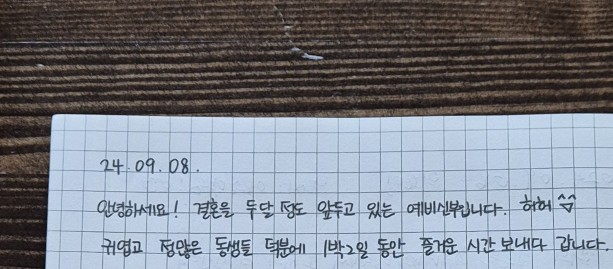 24.09.08.
안녕하세요! 결혼을 두달 정도 앞두고 있는 예비신부입니다. 하하 ^^
귀엽고 정많은 동생들 덕분에 1박2일 동안 즐거운 시간 보내다 갑니다.